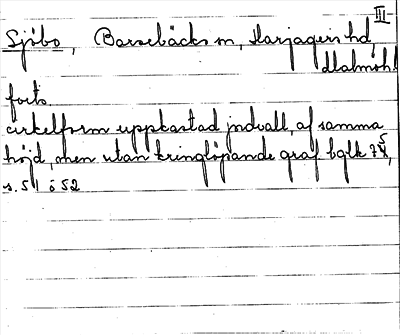 III
Sjöbo, Barsebäcks sn, Harjagers hd,
Malmöhl
forts.
cirkelform uppkastad jordvall, af samma
höjd, men utan kringlöpande graf bglk 75,
s. 51 o 52